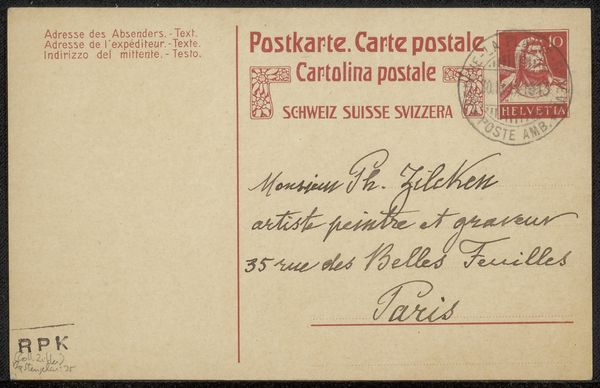 Adresse des Absenders.-Text.
Adresse de l'expéditeur.-Texte.
Indirizzo del mittente.-Testo.
Postkarte. Carte postale
Cartolina postale
SCHWEIZ SUISSE SVIZZERA
10
HELVETIA
POSTE AMB.
Monsieur Ph. Zilcken
artiste peintre et graveur
35 rue des Belles Feuilles
Paris
RPK